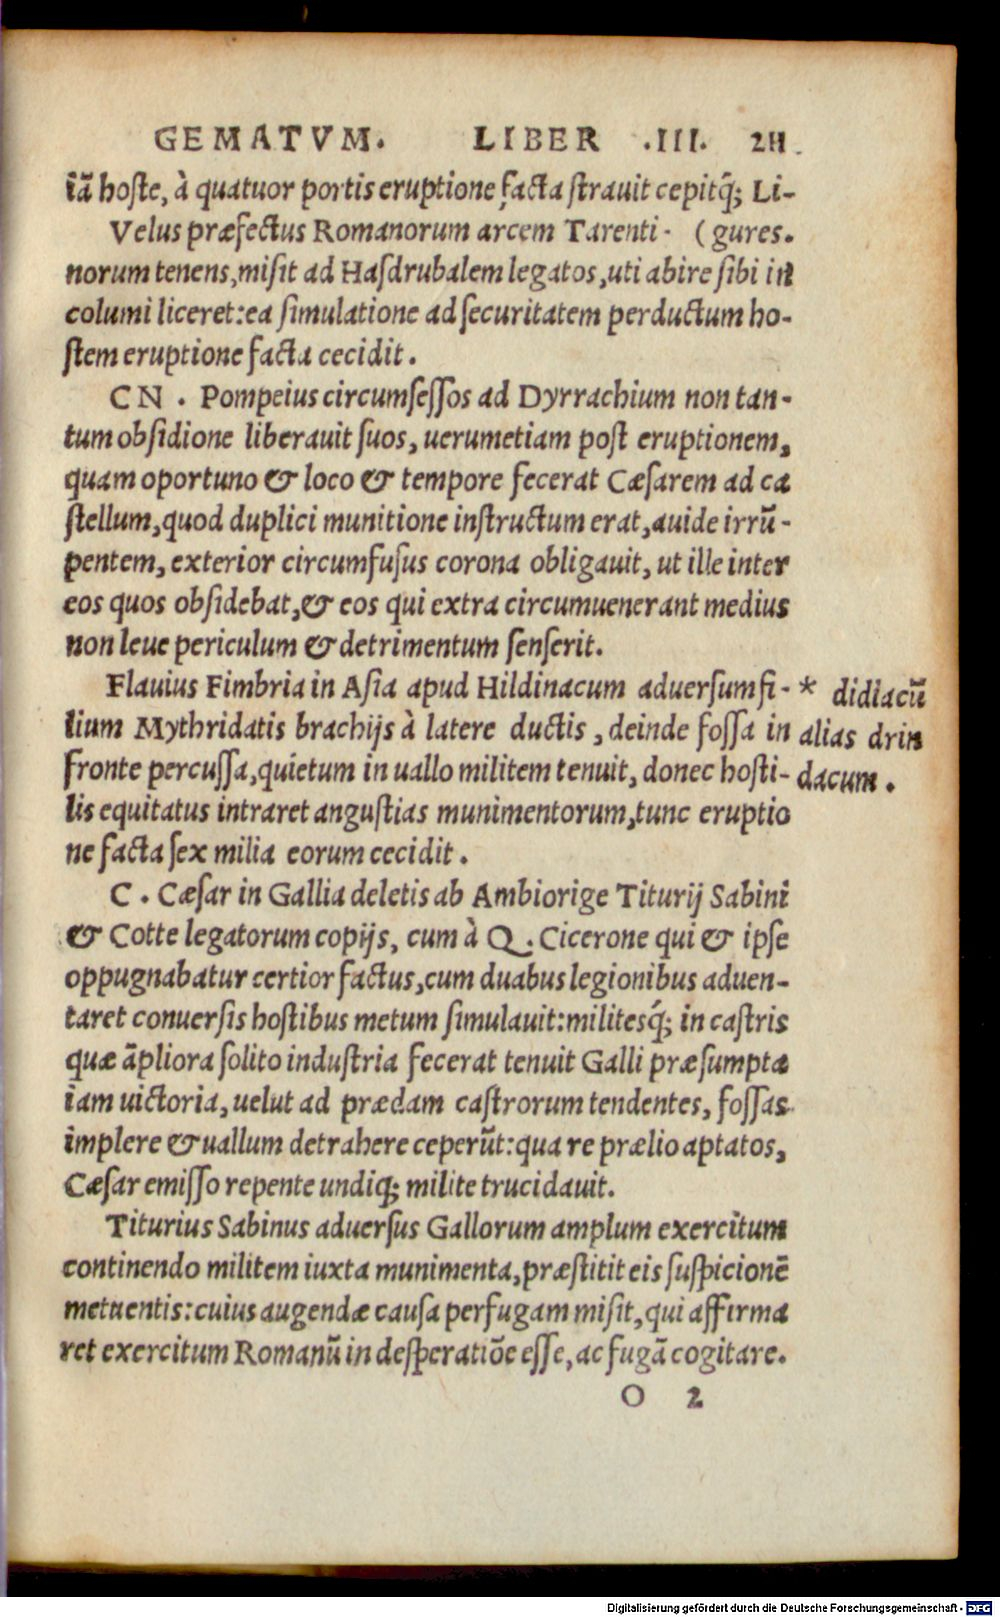 GEMATVM. LIBER .III. 211.
iã hoste, à quatuor portis eruptione facta strauit cepitq̃; Li-
Velus præfectus Romanorum arcem Tarenti- (gures.
norum tenens, misit ad Hasdrubalem legatos, uti abire sibi in
columi liceret: ea simulatione ad securitatem perductum ho-
stem eruptione facta cecidit.
CN. Pompeius circumsessos ad Dyrrachium non tan-
tum obsidione liberauit suos, uerumetiam post eruptionem,
quam oportuno & loco & tempore fecerat Cæsarem ad ca
stellum, quod duplici munitione instructum erat, auide irrũ-
pentem, exterior circumfusus corona obligauit, ut ille inter
eos quos obsidebat, & eos qui extra circumuenerant medius
non leue periculum & detrimentum senserit.
Flauius Fimbria in Asia apud Hildinacum aduersum fi- * didiacũ
lium Mythridatis brachijs à latere ductis, deinde fossa in alias drin
fronte percussa, quietum in uallo militem tenuit, donec hosti- dacum.
lis equitatus intraret angustias munimentorum, tunc eruptio
ne facta sex milia eorum cecidit.
C. Cæsar in Gallia deletis ab Ambiorige Titurij Sabini
& Cotte legatorum copijs, cum à Q. Cicerone qui & ipse
oppugnabatur certior factus, cum duabus legionibus aduen-
taret conuersis hostibus metum simulauit: militesq̃; in castris
quæ ãpliora solito industria fecerat tenuit Galli præsumpta
iam uictoria, uelut ad prædam castrorum tendentes, fossas
implere & uallum detrahere ceperũt: qua re prælio aptatos,
Cæsar emisso repente undiq; milite trucidauit.
Titurius Sabinus aduersus Gallorum amplum exercitum
continendo militem iuxta munimenta, præstitit eis suspicionẽ
metuentis: cuius augendæ causa perfugam misit, qui affirma
ret exercitum Romanũ in desperatiõe esse, ac fugã cogitare.
O 2
Digitalisierung gefördert durch die Deutsche Forschungsgemeinschaft - DFG